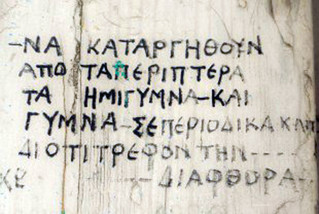 -ΝΑ ΚΑΤΑΡΓΗΘΟΥΝ
ΑΠΟ ΤΑ ΠΕΡΙΠΤΕΡΑ
ΤΑ ΗΜΙΓΥΜΝΑ-ΚΑΙ
ΓΥΜΝΑ-ΣΕ ΠΕΡΙΟΔΙΚΑ ΚΛΠ
ΔΙΟΤΙ ΤΡΕΦΟΝ ΤΗΝ----
----ΔΙΑΦΘΟΡΑ--